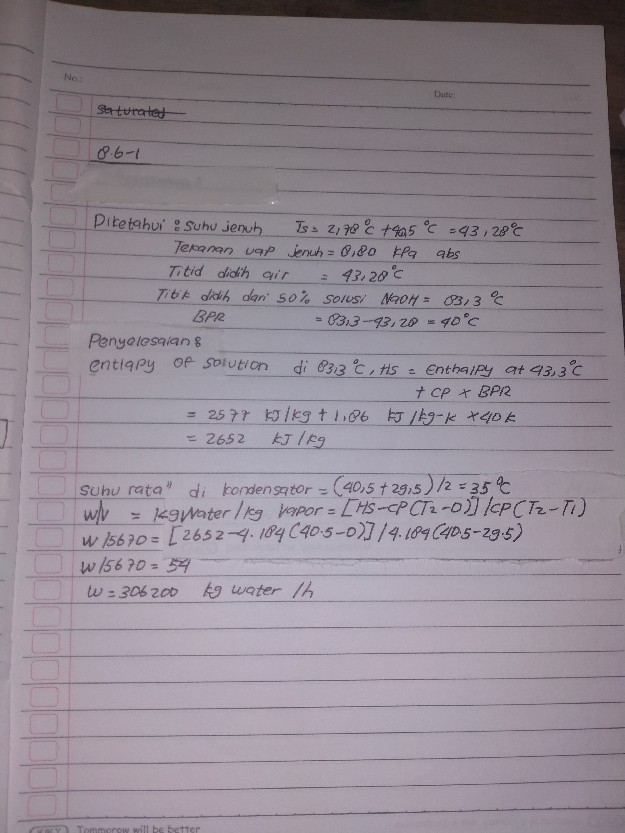 No.:
Date:
Saturated
8.6-1
Diketahui : Suhu jenuh Ts = 2,78°C + 40,5 °C = 43,28°C
Tekanan uap jenuh = 8,80 kPa abs
Titid didih air = 43,28°C
Titik didih dari 50% solusi NaOH = 83,3 °C
BPR = 83,3-43,28 = 40°C
Penyelesaian :
entlapy of solution di 83,3°C, HS = Enthalpy at 43,3°C
+ CP x BPR
= 2577 kJ/kg + 1,86 kJ/kg-k x 40k
= 2652 kJ/kg
suhu rata" di kondensator = (40,5 + 29,5)/2 = 35°C
w/v = kgwater/kg vapor = [HS-CP(T2-0)]/CP(T2-T1)
w/5670 = [2652-4.184(40.5-0)]/4.184(40.5-29.5)
w/5670 = 54
w = 306200 kg water /h
Tommorow will be better